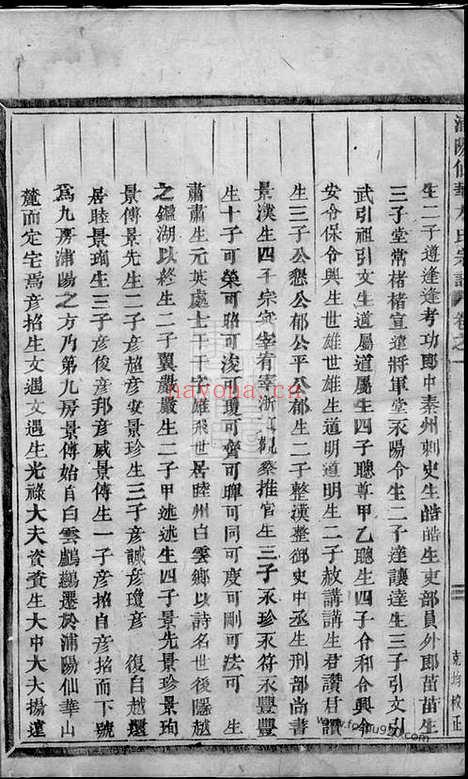 浦陽仙華方氏宗譜 卷之一
生二子道逢逢考功郎中秦州刺史生皓皓生吏部員外郎苗苗生
三子堂常楮楮宣達將軍堂永陽令生二子達讓達生三子引文引
武引祖引文生道屬道屬生四子聰尊甲乙聰生四子令和令興令
安令保令興生世雄世雄生道明道明生二子赦講講生君讚君讚
生三子公懇公郁公平公郁生二子整漢整御史中丞生刑部尚書
景漢生四子宗宜宰宥宰浙江觀察推官生三子永珍永符永豐豐
生十子可榮可昭可浚可瓊可齊可暉可同可度可剛可法可 生
肅肅生元英處士干干字雄飛世居睦州白雲鄉以詩名世後隱越
之鑑湖以終生二子翼嚴嚴生二子甲述述生四子景先景珍景珣
景傳景先生二子彥超彥安景珍生三子彥誠彥瓊彥 復自越還
居睦景珣生三子彥俊彥邦彥威景傳生一子彥招自彥招而下號
為九房浦陽之方乃第九房景傳始自白雲鸕鶿遷於浦陽仙華山
麓而定宅焉彥招生文遇文遇生光祿大夫資資生大中大夫揚遠
克均校正
hayona.cn
www.fosu950.com